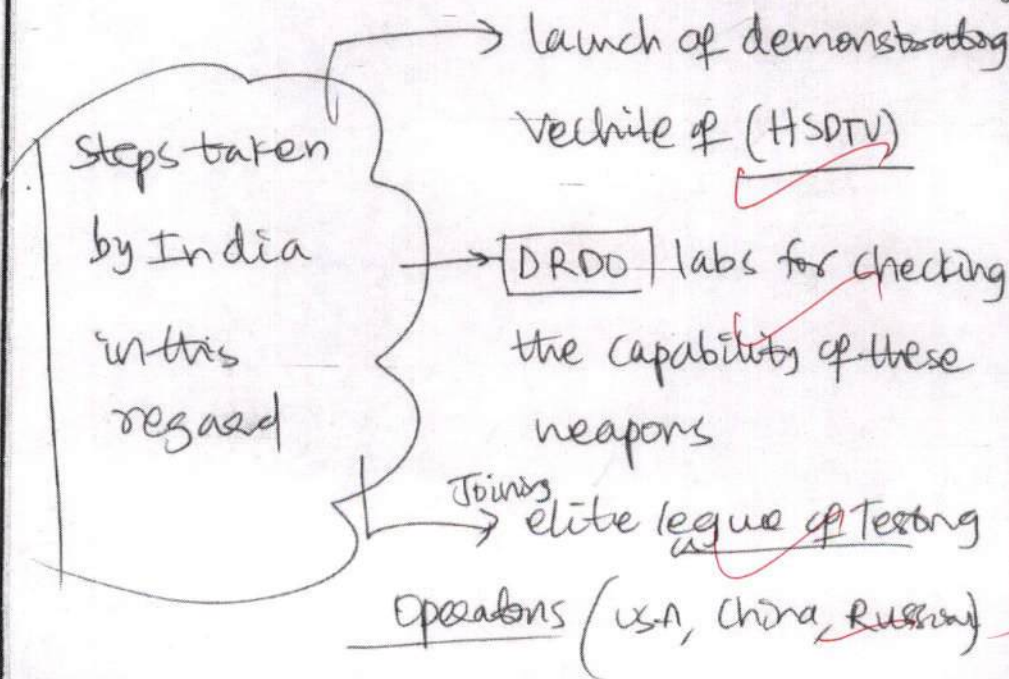 Steps taken
by India
in this
regard
launch of demonstrating
Vechile of (HSDTV)
DRDO labs for checking
the capability of these
weapons
Joining
elite legue of Testing
Operatons (USA, China, Russia)